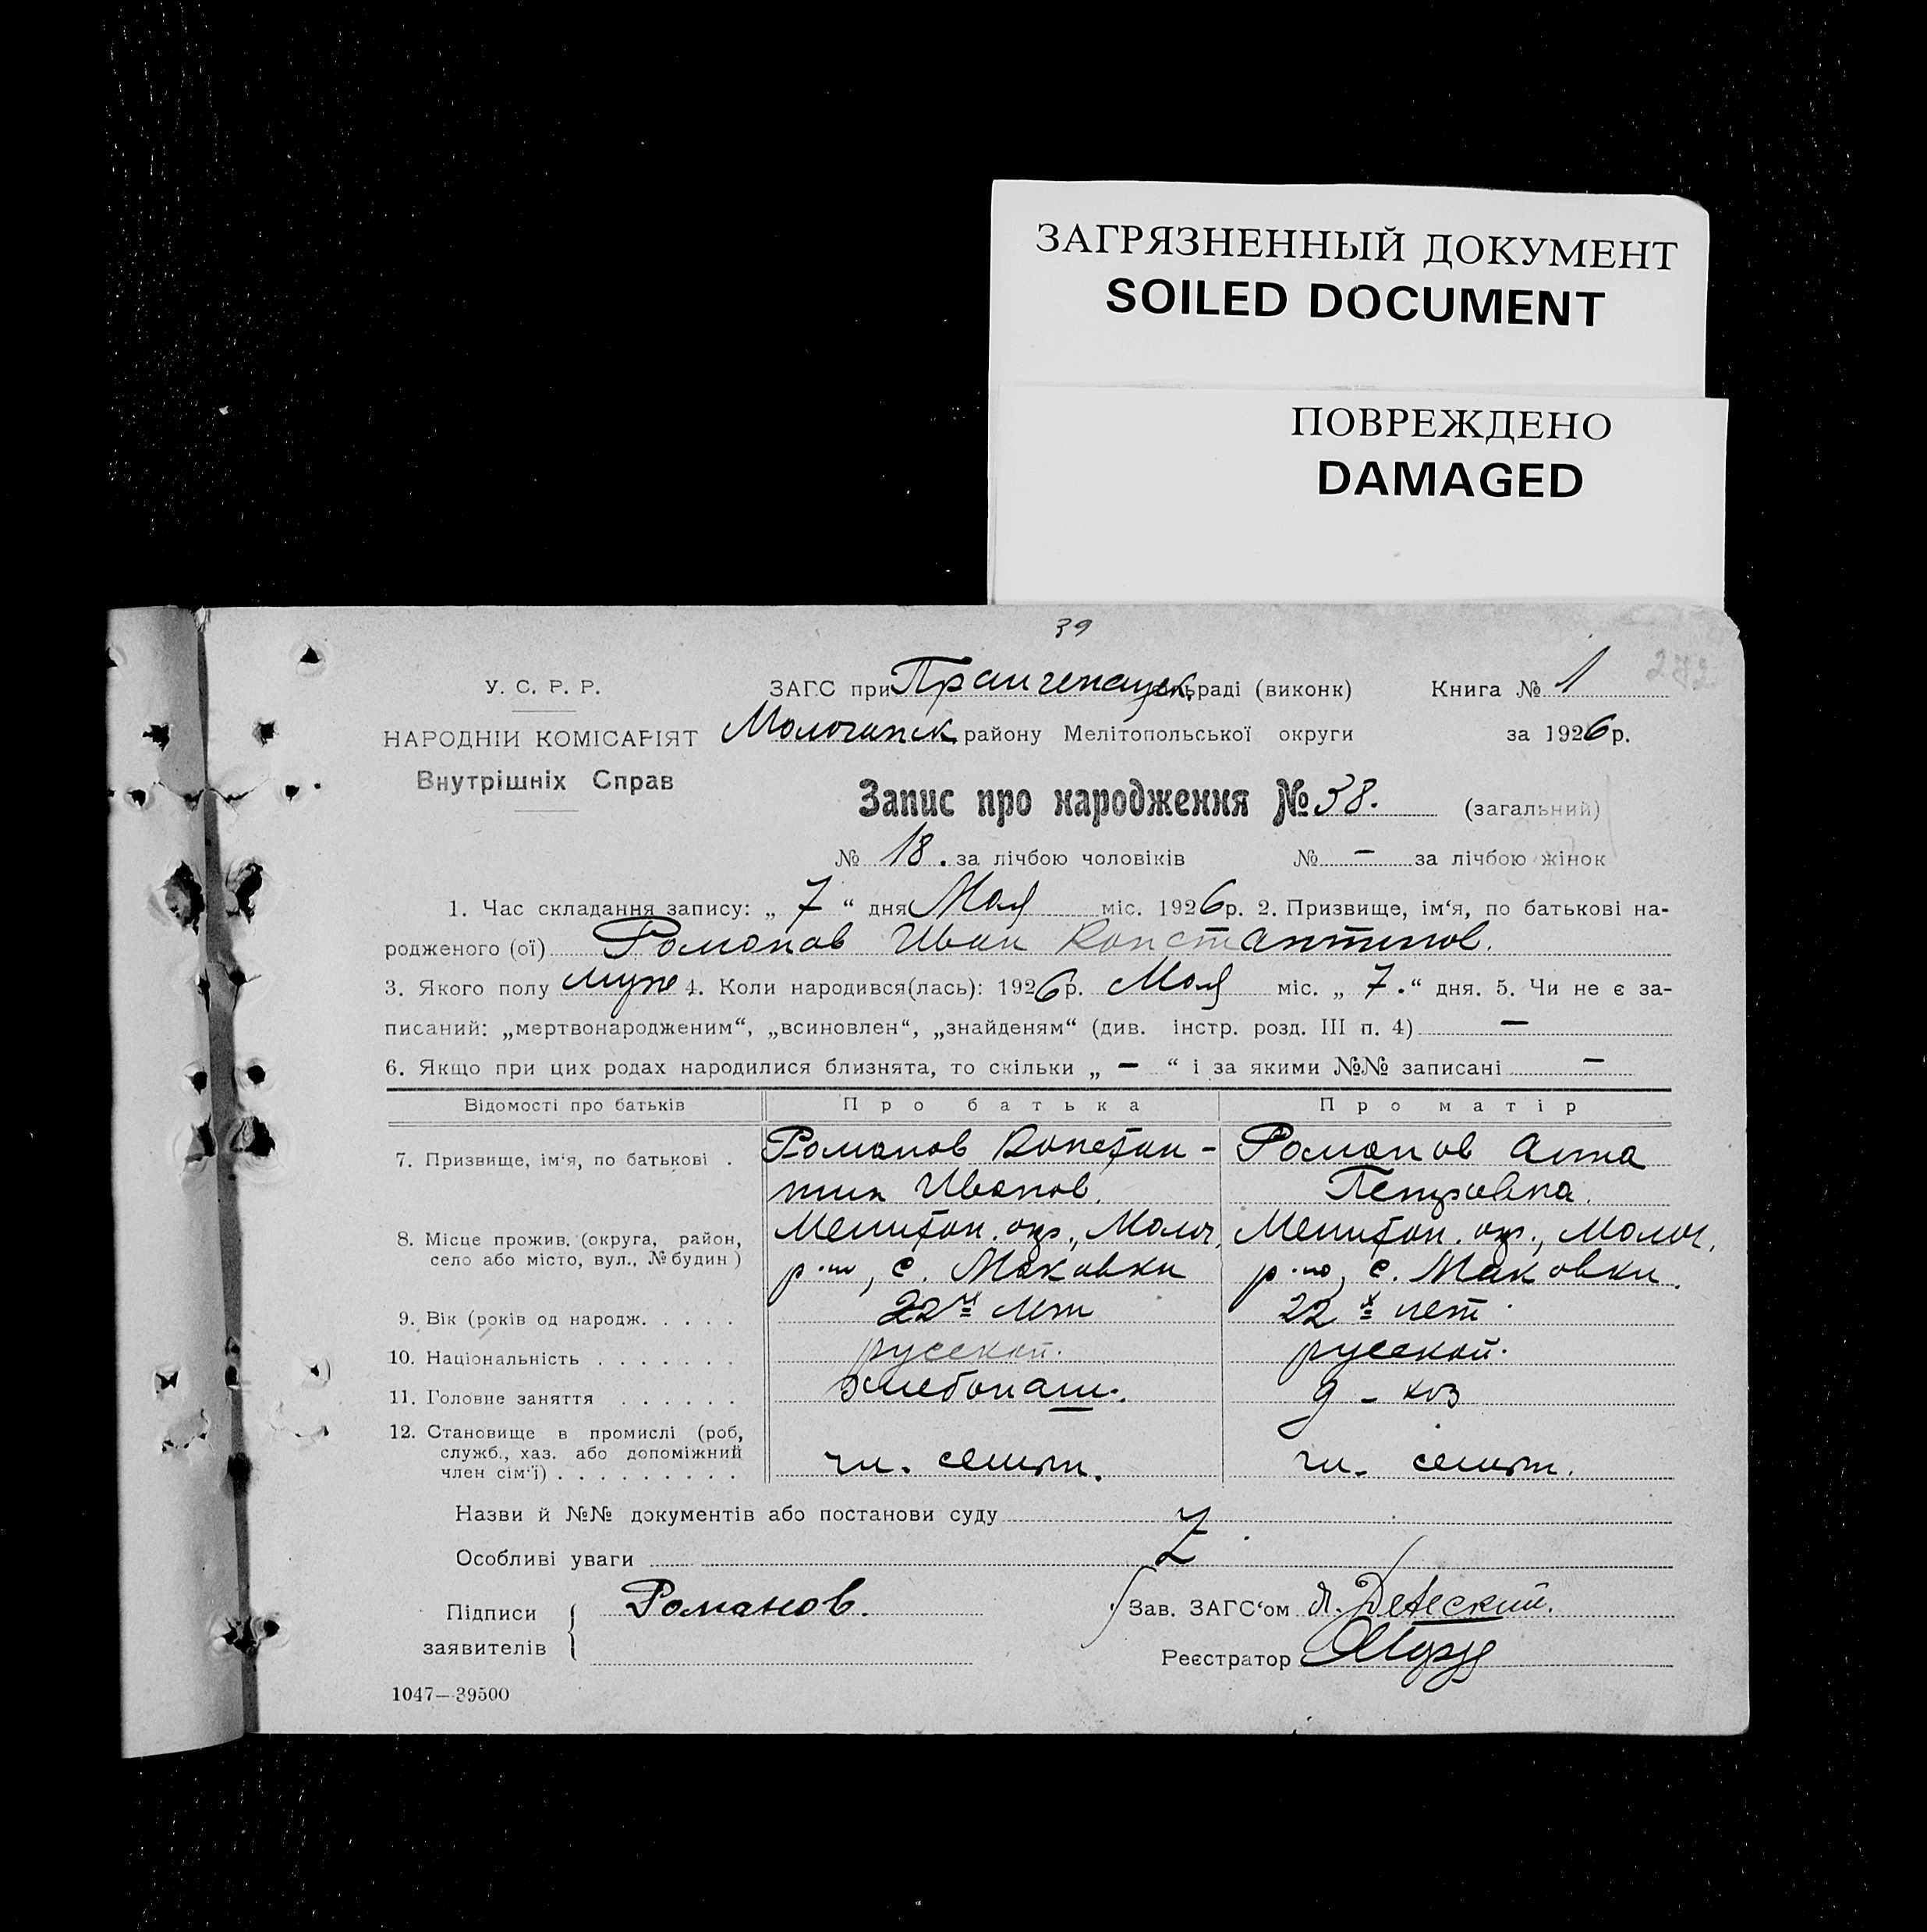 ЗАГРЯЗНЕННЫЙ ДОКУМЕНТ
SOILED DOCUMENT
ПОВРЕЖДЕНО
DAMAGED
39
У. С. Р. Р.
ЗАГС при раді (виконк)
Книга № 1
НАРОДНІЙ КОМІСАРІЯТ
Молочанск району Мелітопольської округи
за 1926 р.
Внутрішніх Справ
Запис про народження № 38. (загальний)
№ 18. за лічбою чоловіків № – за лічбою жінок
1. Час складання запису: „ 7 “ дня Мая міс. 1926 р. 2. Призвище, ім‘я, по батькові на-
родженого (ої) Романов Иван Константинов.
3. Якого полу муж 4. Коли народився(лась): 1926 р. Мая міс. „ 7. “ дня. 5. Чи не є за-
писаний: „мертвонародженим“, „всиновлен“, „знайденям“ (див. інстр. розд. III п. 4) –
6. Якщо при цих родах народилися близнята, то скільки „ – “ і за якими №№ записані –
Відомості про батьків Про батька Про матір
7. Призвище, ім‘я, по батькові . Романов Констан- Романов Анна
тин Иванов. Петровна.
8. Місце прожив. (округа, район, Мелитоп. окр., Молоч. Мелитоп. окр., Молоч.
село або місто, вул., № будин ) р-на, с. Маковки р-на, с. Маковки.
9. Вік (років од народж. . . . . 22х лет 22х лет
10. Національність . . . . . . . русский. русской.
11. Головне заняття . . . . . . хлебопаш. д-хоз
12. Становище в промислі (роб,
служб., хаз. або допоміжний
член сім‘ї) . . . . . . . . . чл. семьт. чл. семьт.
Назви й №№ документів або постанови суду
Особливі уваги Z
Підписи
заявителів
Романов.
Зав. ЗАГС‘ом
Реєстратор
1047—39500